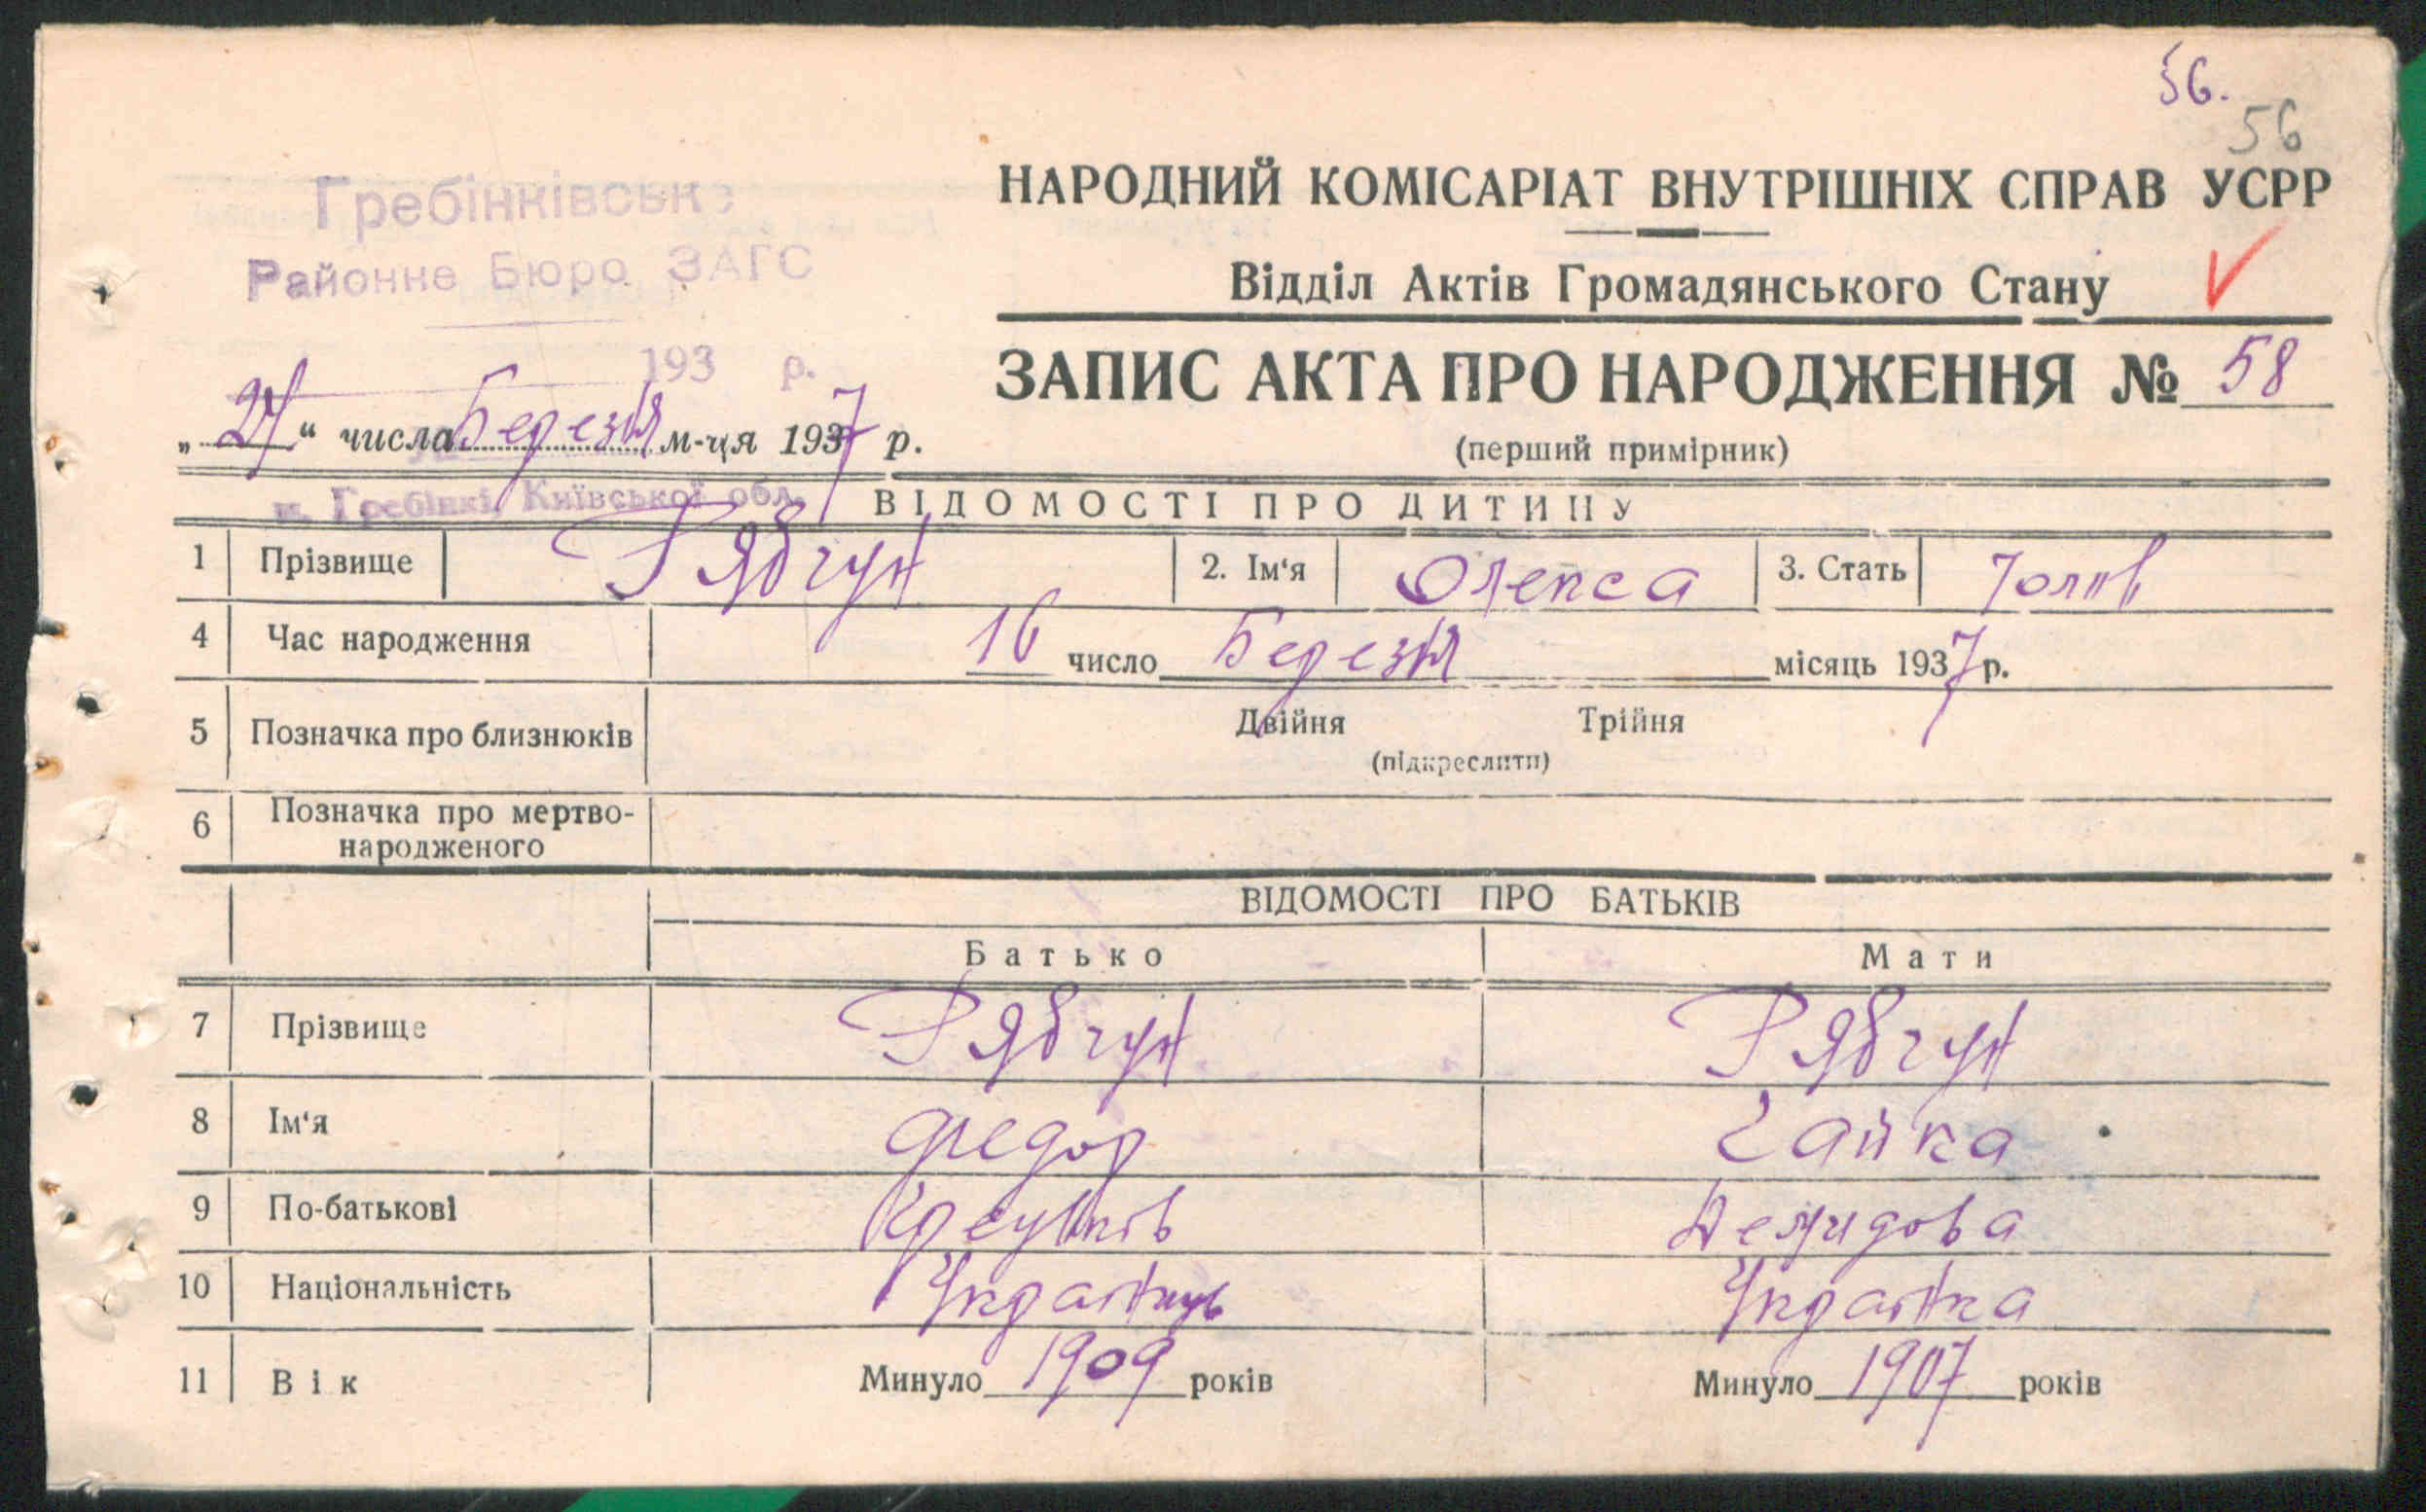 56.
56
Гребінківське
Районне Бюро ЗАГС
193 р.
НАРОДНИЙ КОМІСАРІАТ ВНУТРІШНІХ СПРАВ УСРР
Відділ Актів Громадянського Стану
ЗАПИС АКТА ПРО НАРОДЖЕННЯ № 58
(перший примірник)
„ " числа Березня м-ця 1937 р.
м. Гребінкі, Київської обл.
ВІДОМОСТІ ПРО ДИТИНУ
1 Прізвище Рябчун 2. Ім‘я Олекса 3. Стать Чолов
4 Час народження 16 число Березня місяць 1937 р.
5 Позначка про близнюків Двійня Трійня
(підкреслити)
6 Позначка про мертво-
народженого
ВІДОМОСТІ ПРО БАТЬКІВ
Батько Мати
7 Прізвище Рябчун Рябчун
8 Ім‘я Федор
9 По-батькові Демидова
10 Національність Українець Українка
11 Вік Минуло 1909 років Минуло 1907 років